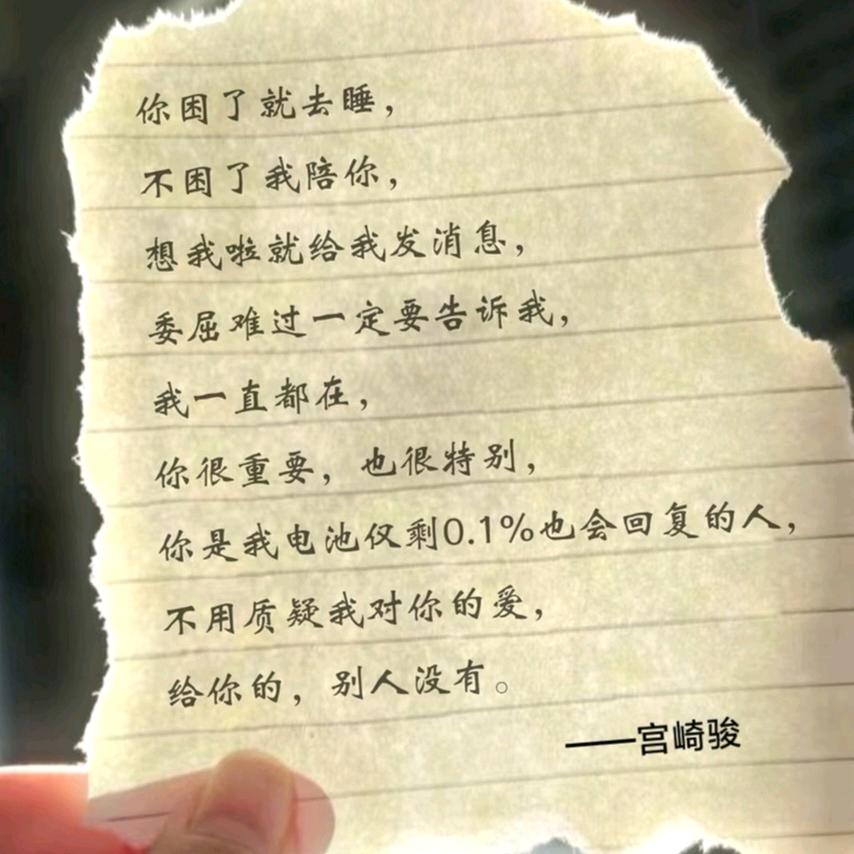 你困了就去睡，
不困了我陪你，
想我啦就给我发消息，
委屈难过一定要告诉我，
我一直都在，
你很重要，也很特别，
你是我电池仅剩0.1%也会回复的人，
不用质疑我对你的爱，
给你的，别人没有。
——宫崎骏